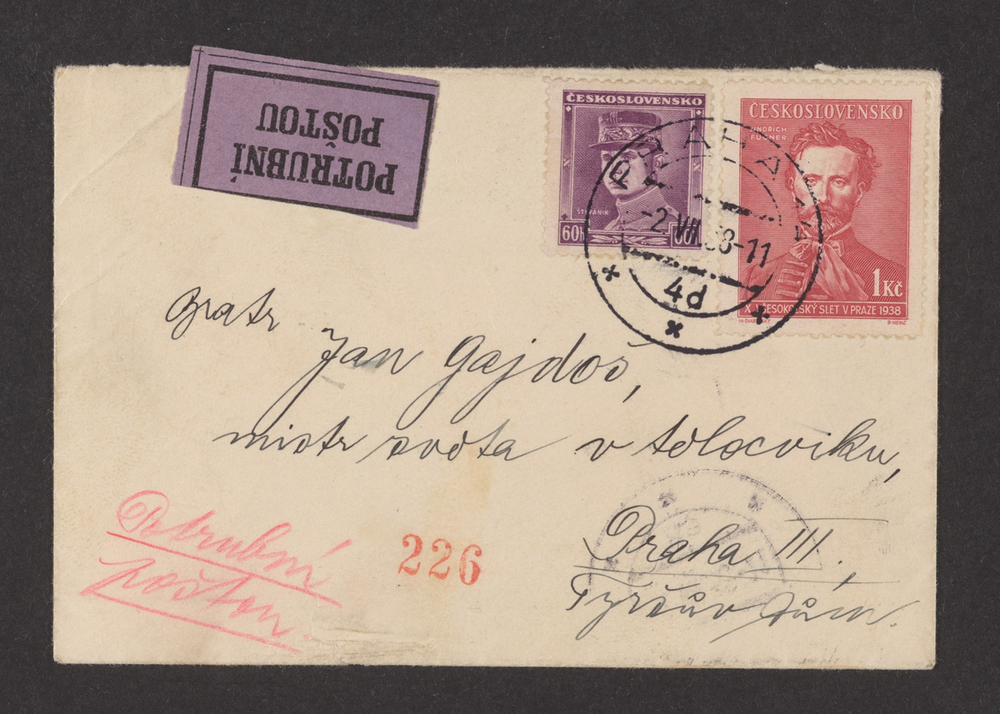 POTRUBNÍ
POŠTOU
ČESKOSLOVENSKO
ŠTEFÁNIK
60h
ČESKOSLOVENSKO
JINDŘICH
FÜGNER
1 Kč
X. VŠESOKOLSKÝ SLET V PRAZE 1938
PRAHA
-2.VII.38-11
4d
Bratr
Jan Gajdoš,
mistr světa v tělocviku,
Praha III.,
Tyršův dům.
Potrubní
poštou.
226